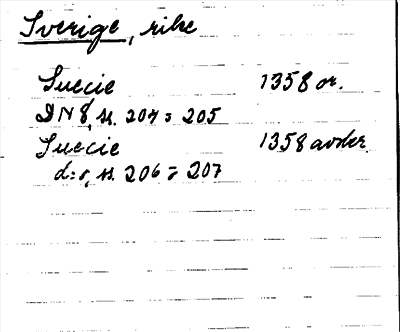 Sverige, rike
Suecie 1358 or.
DN 8, s. 204-205
Suecie 1358 avskr.
d:o, s. 206-207